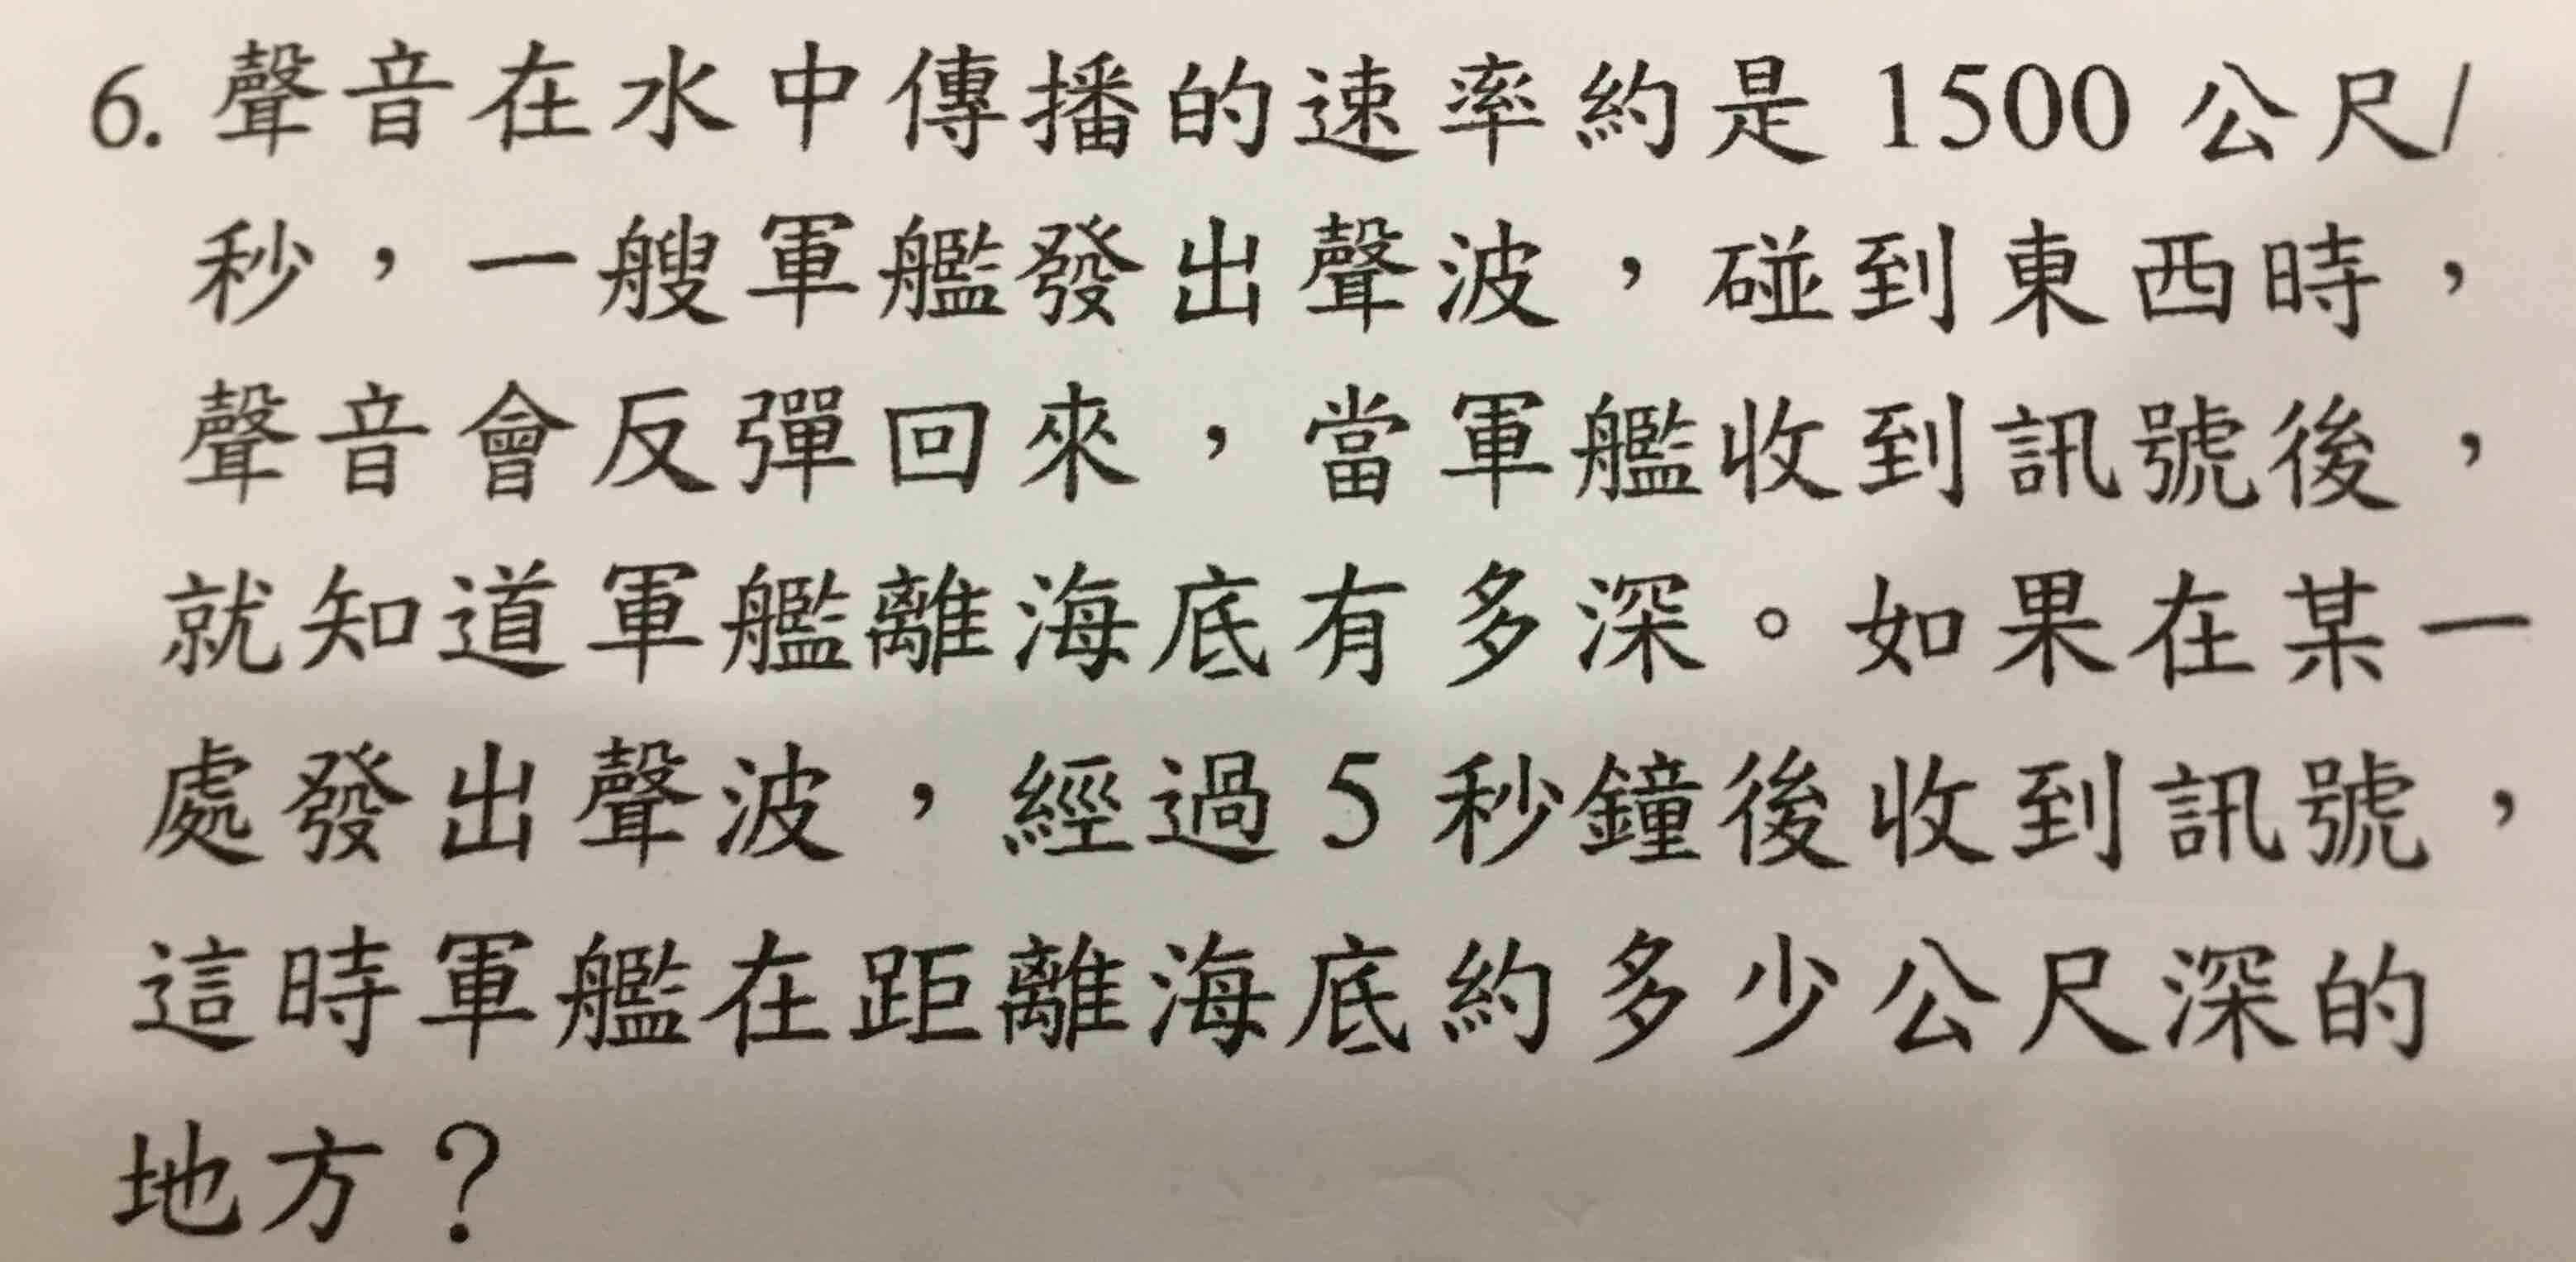 6. 聲音在水中傳播的速率約是 1500 公尺/
秒，一艘軍艦發出聲波，碰到東西時，
聲音會反彈回來，當軍艦收到訊號後，
就知道軍艦離海底有多深。如果在某一
處發出聲波，經過 5 秒鐘後收到訊號，
這時軍艦在距離海底約多少公尺深的
地方？